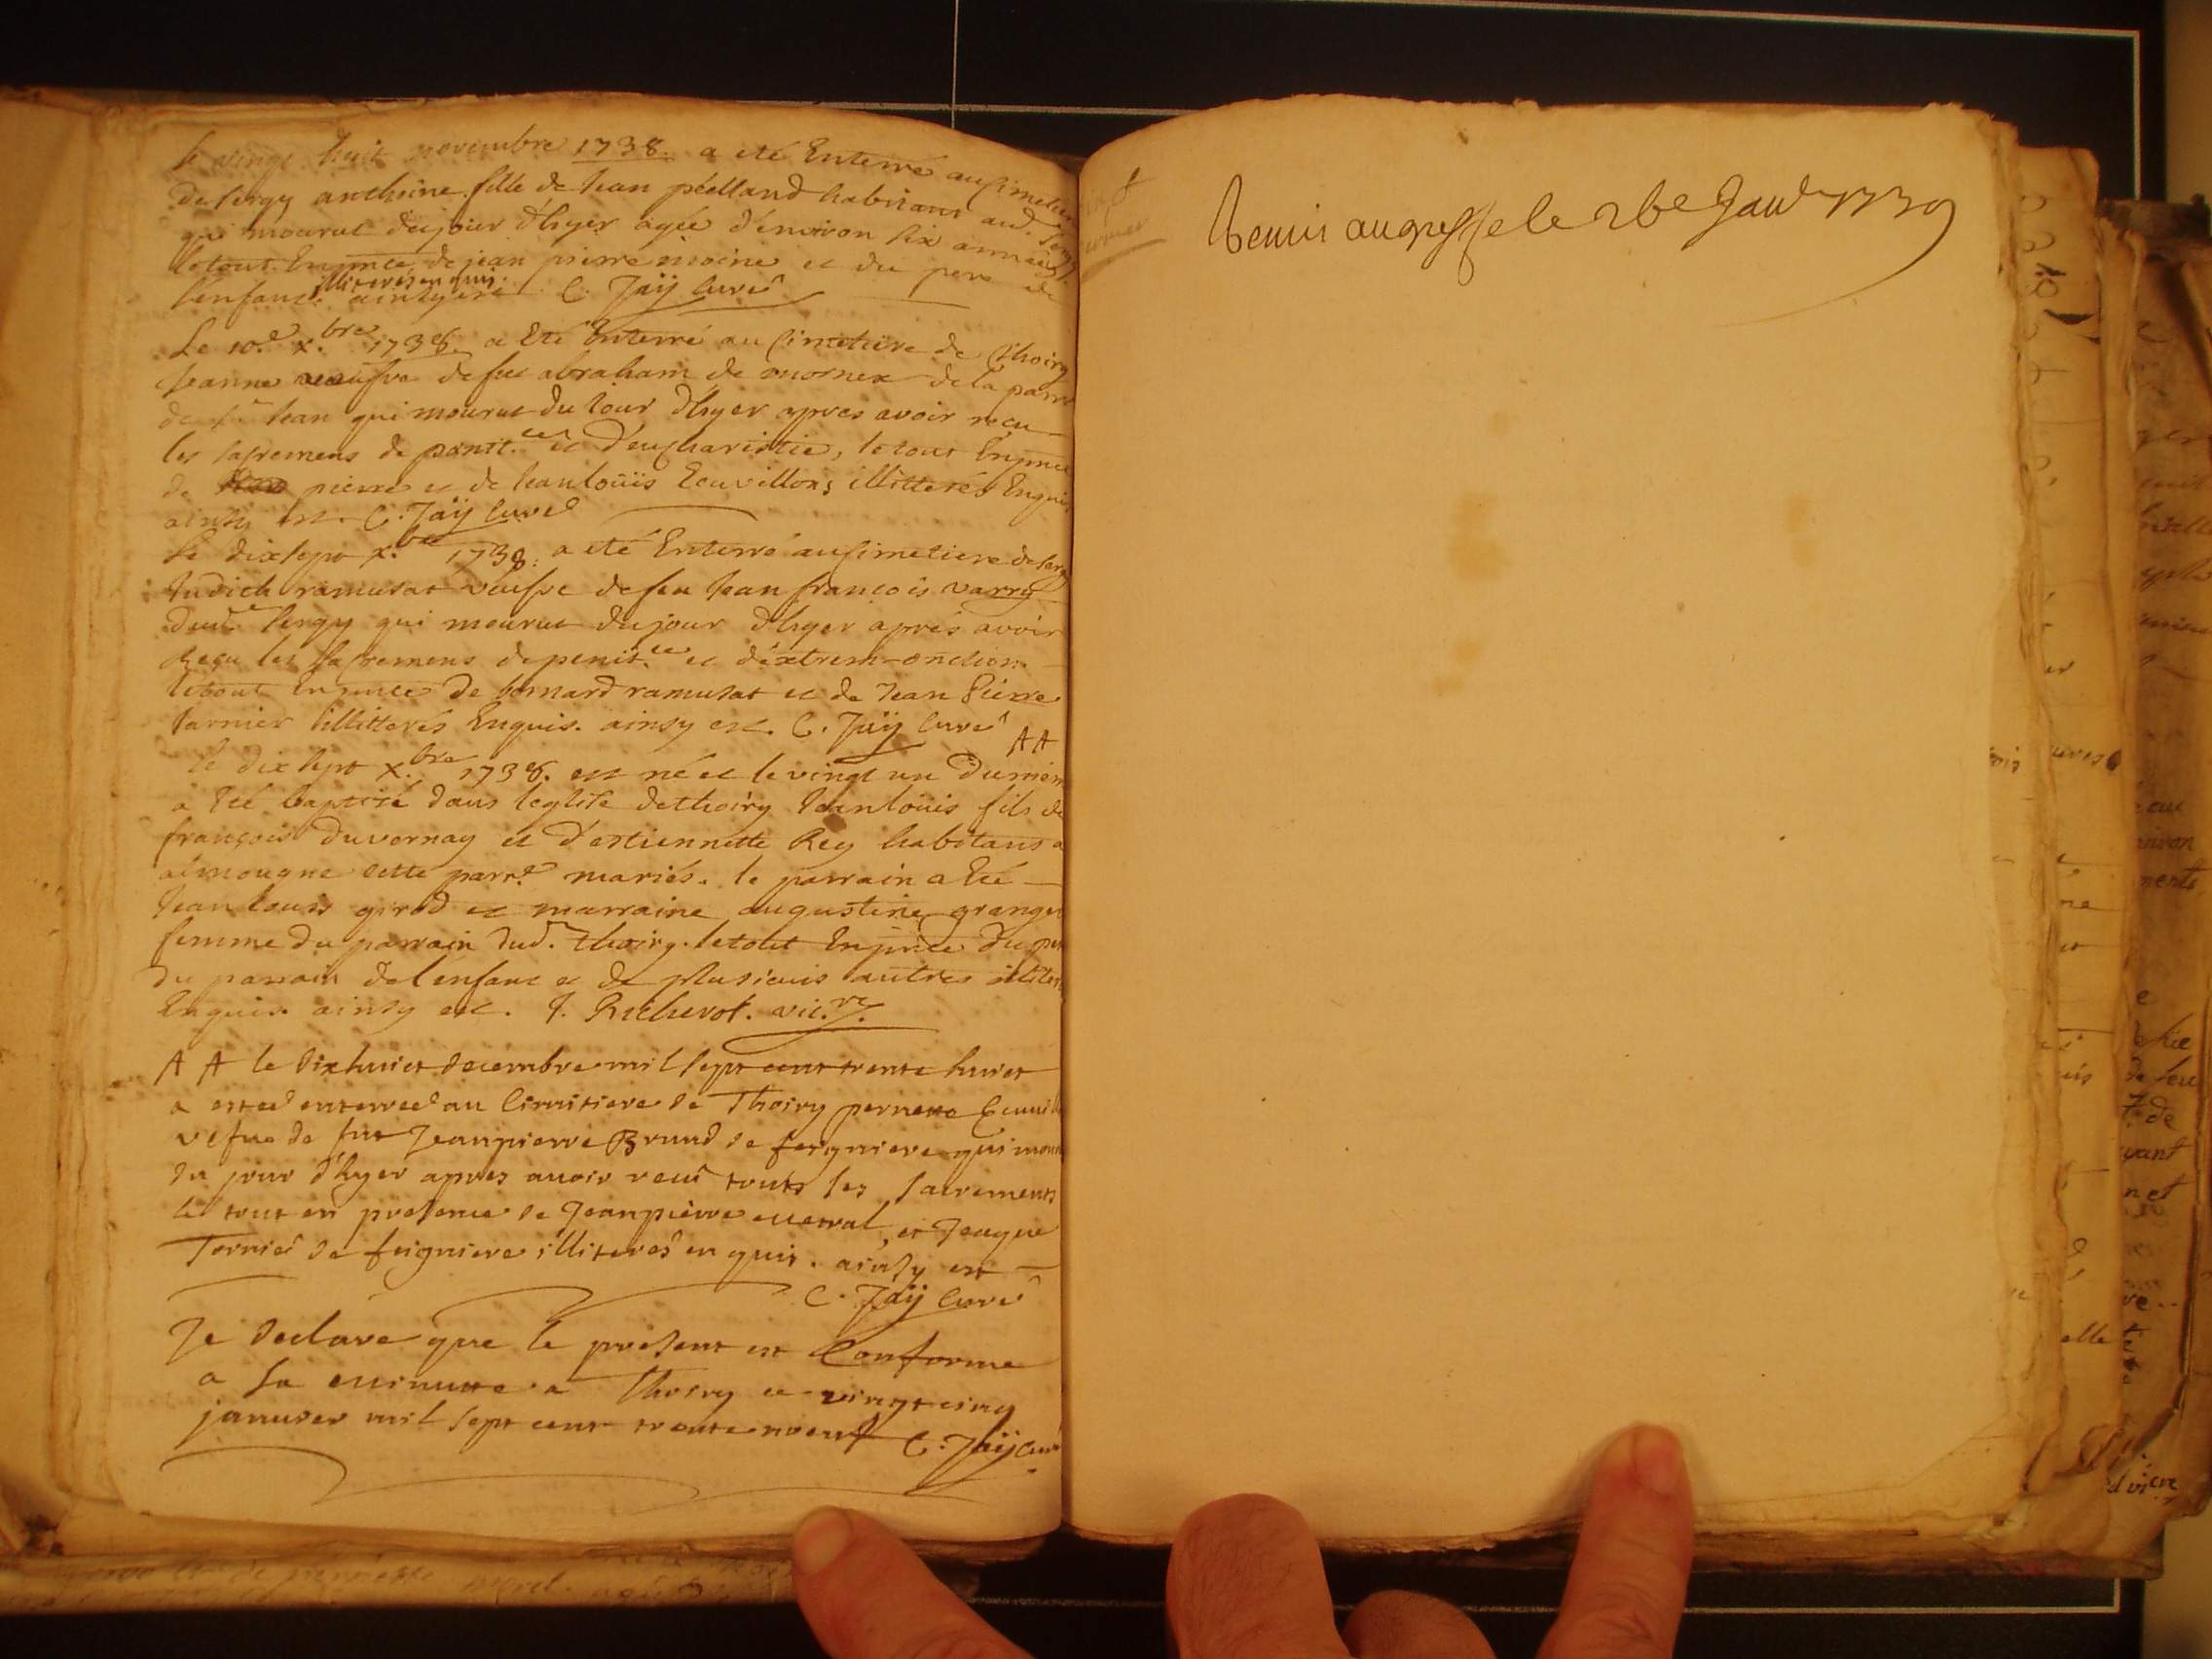 le vingt huit novembre 1738. a eté Enterré au simetiere
de sergy anthoine fille de Jean habitant aud. sergy
qui mourut du jour d'hyer agée d'environ six années
le tout En pnce de jean pierre moine et du pere de
l'enfant illiterés enquis ainsy est C. Jaÿ Curé
Le 10.e x.bre 1738. a Eté Enterré au simetiere de thoiry
Jeanne veusve de feu abraham de mornex de la parr
de st Jean qui mourut du Jour d'hyer apres avoir reçu
les sacremens de penit.ce et d'eucharistie, le tout En pnce
de pierre et de Jean loüis Ecuvillon illitterés Enquis
ainsy est. C. Jaÿ Curé
le dix sept x.bre 1738. a eté Enterré au simetiere de sergy
Judith ramusat veusve de feu Jean françois varry
dud. sergy qui mourut du jour d'hyer aprés avoir
Reçu les sacremens de penit.ce et d'extrem-onction
le tout En pnce de bernard ramusat et de Jean Pierre
tarnier illitterés Enquis. ainsy est. C. Jaÿ Curé
AA
le dix sept x.bre 1738. est né et le vingt un du mem
a Eté baptisé dans leglise de thoiry Jean loüis fils de
françois Duvernay et d'estiennette Rey habitans a
almougne cette parr.e mariés. le parrain a Eté
Jean louis girod et marraine augustine granger
femme du parrain dud. thoiry. le tout En pnce du per
du parrain de l'enfant et de plusieuis autres illiter
Enquis. ainsy est. J. Richerot. vic.re
AA le dixhuict decembre mil sept cent trente huict
a estee enterree au Cimitiere de Thoiry pernette Ecuvil
vefue de fut Jeanpierre Brund de feigniere qui mour
du jour d'hyer apres auoir receu touts les sacrements
le tout en presence de Jeanpierre mestral, et Jaque
Tornier de feigniere illiteres enquis. ainsy est
C. Jaÿ Curé
Je declare que le present est Conforme
a sa minutte a Thoiry ce vingt cinq
januier mil sept cent trente neuf C. Jaÿ Curé
Remis au greffe le 26e Janv 1739